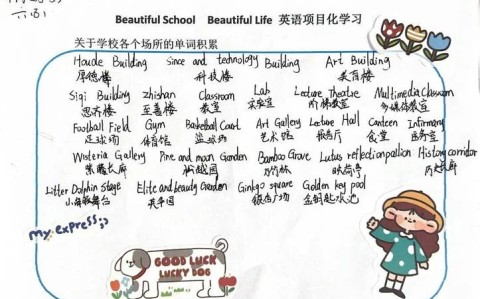 六(3)
Beautiful School Beautiful Life 英语项目化学习
关于学校各个场所的单词积累
Houde Building since and technology Building Art Building
厚德楼 科技楼 美育楼
Siqi Building zhishan Classroom Lab Lecture Theatre Multimedia Classroom
思齐楼 至善楼 教室 实验室 阶梯教室 多媒体教室
Football Field Gym Basketball Court Art Gallery Lecture Hall Canteen Infirmary
足球场 体育馆 篮球场 艺术馆 报告厅 食堂 医务室
Wisteria Gallery Pine and moon Garden Bamboo Grove Lutus reflection pation History corridor
紫藤长廊 松月园 映荷亭 历史长廊
Litter Dolphin Stage Elite and beauty Garden Ginkgo square Golden key pool
小海豚舞台 英平园 银杏广场 金钥匙水池
my express:
GOOD LUCK
LUCKY DOG